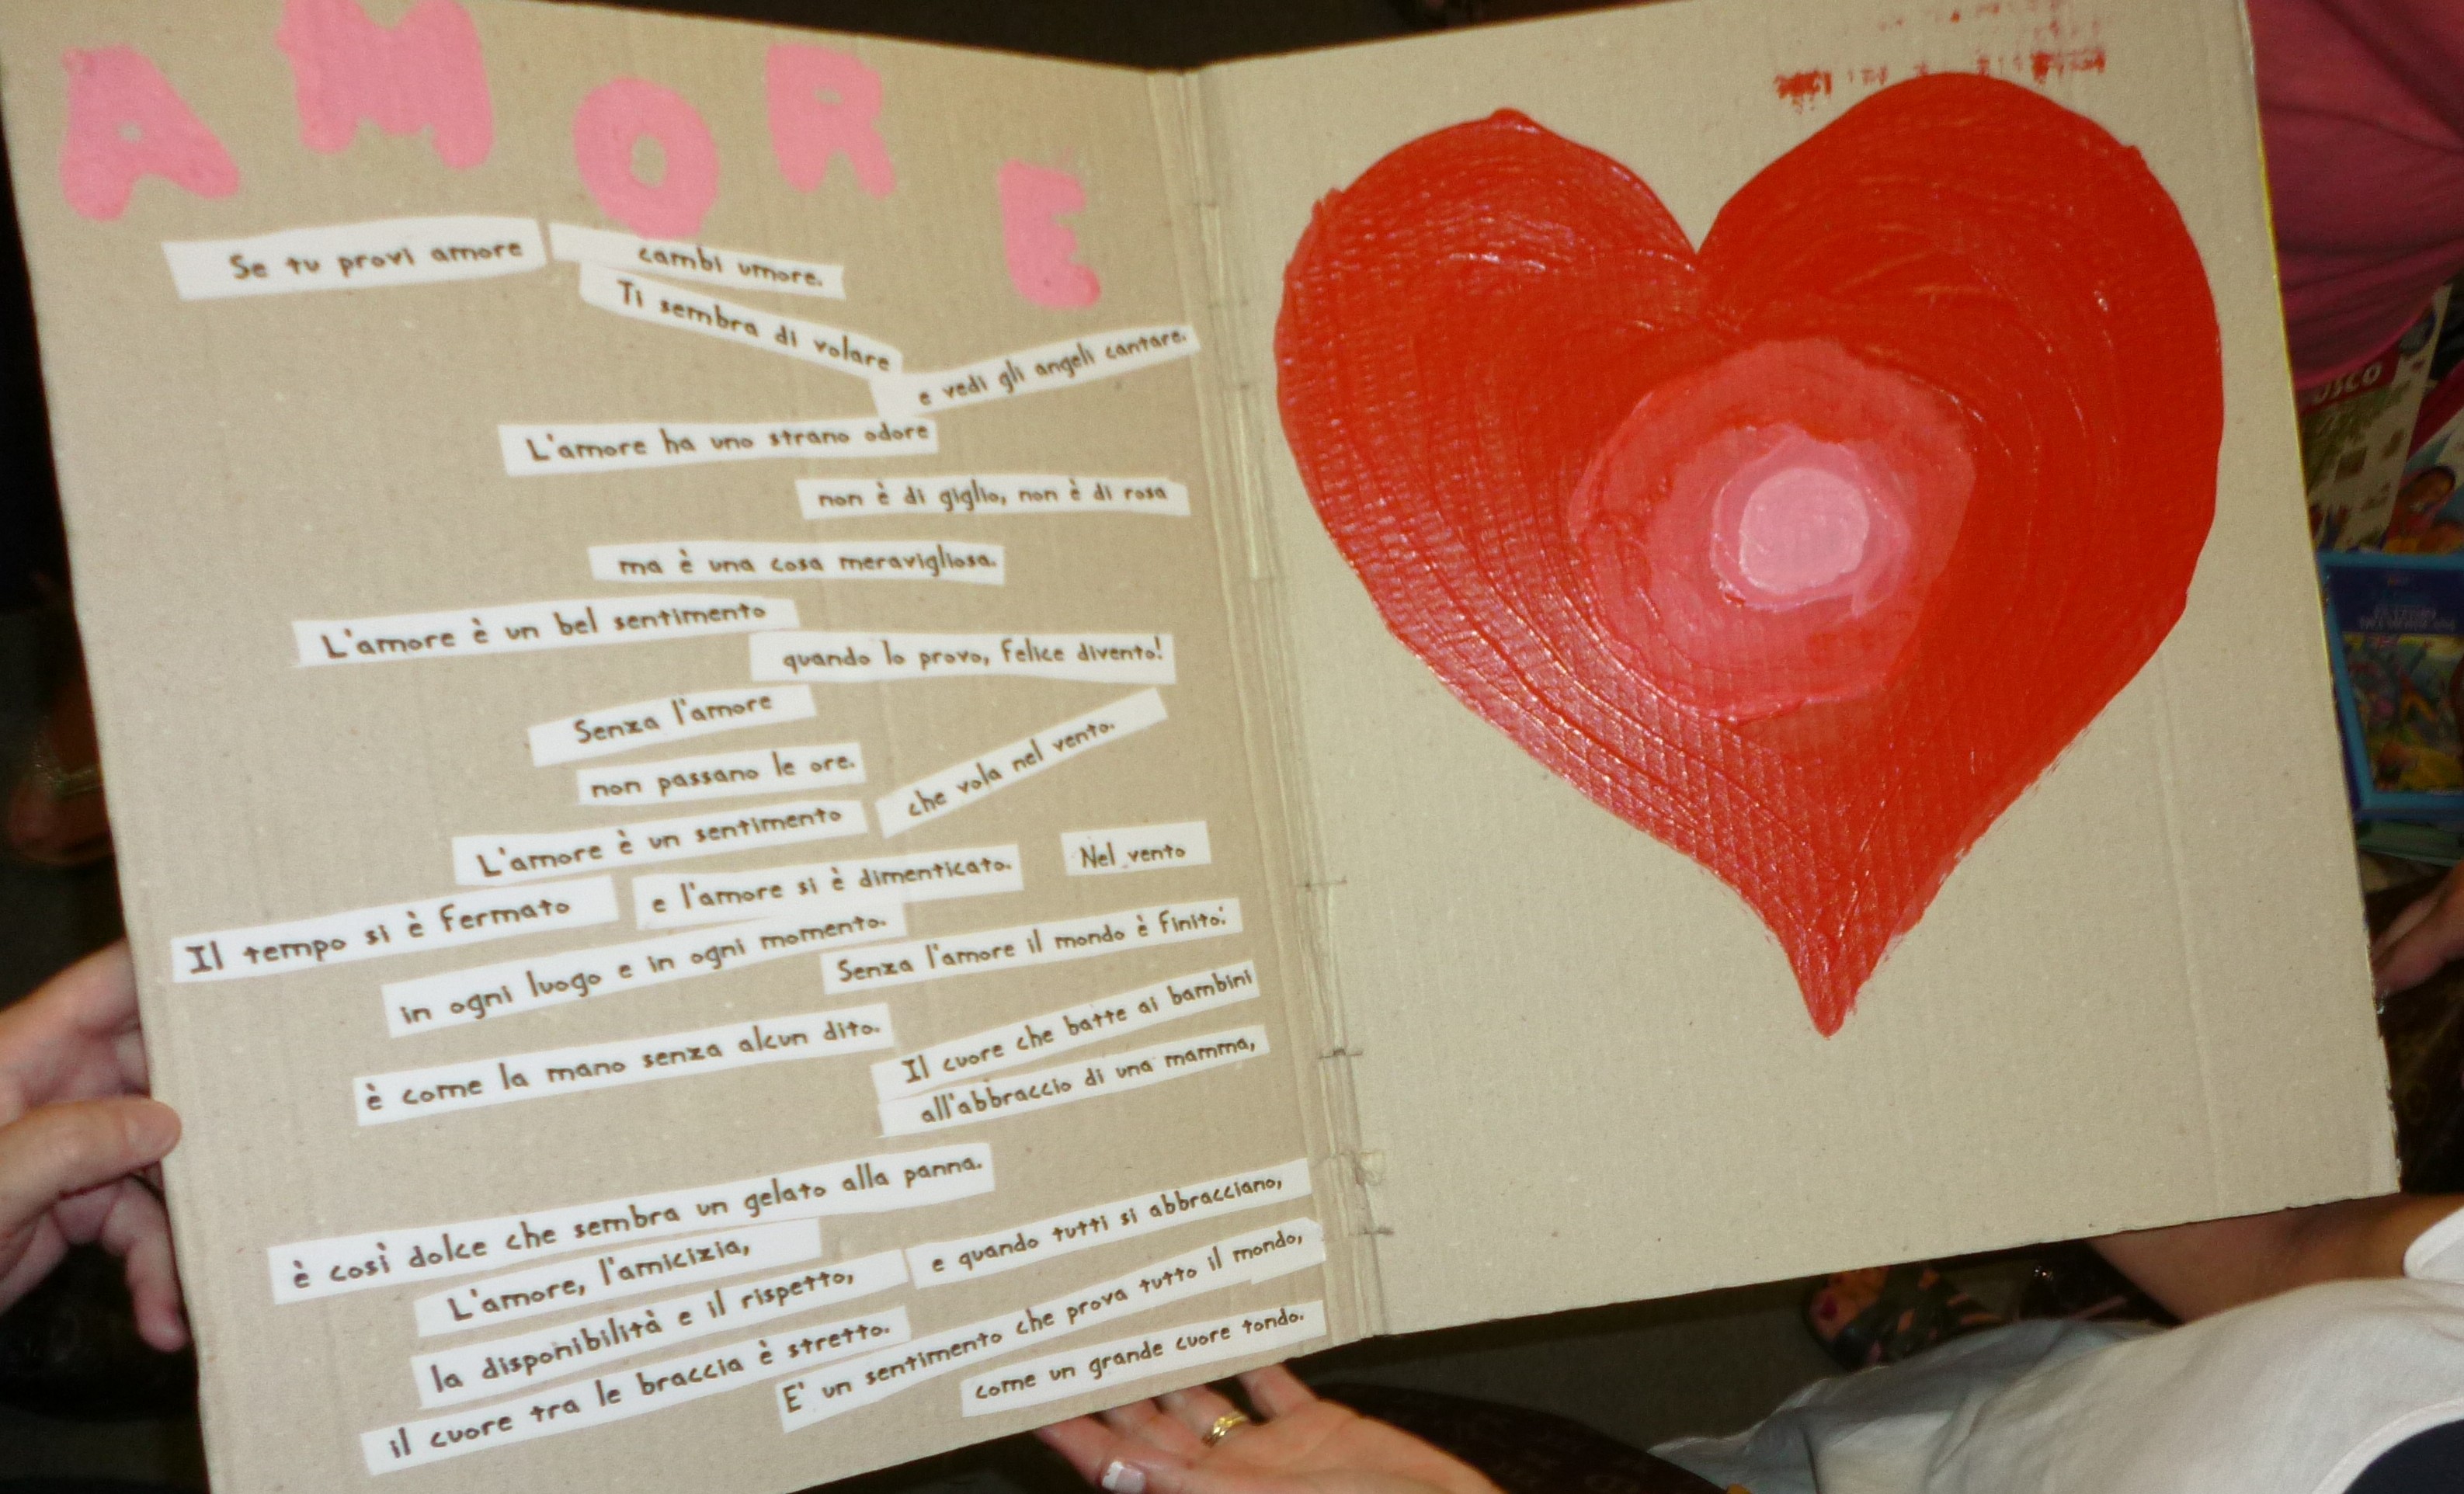 AMORE
Se tu provi amore
cambi umore.
Ti sembra di volare
e vedi gli angeli cantare.
L'amore ha uno strano odore
non è di giglio, non è di rosa
ma è una cosa meravigliosa.
L'amore è un bel sentimento
quando lo provo, felice divento!
Senza l'amore
non passano le ore.
L'amore è un sentimento
che vola nel vento.
Il tempo si è fermato
e l'amore si è dimenticato.
Nel vento
in ogni luogo e in ogni momento.
Senza l'amore il mondo è finito:
è come la mano senza alcun dito.
Il cuore che batte ai bambini
all'abbraccio di una mamma,
è così dolce che sembra un gelato alla panna.
L'amore, l'amicizia,
la disponibilità e il rispetto,
il cuore tra le braccia è stretto.
e quando tutti si abbracciano,
E' un sentimento che prova tutto il mondo,
come un grande cuore tondo.